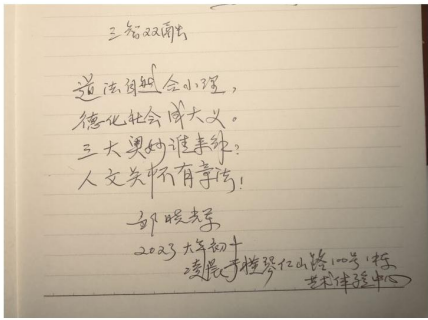 三智双融
道法自然合心理，
德化社会成大义。
三大奥妙谁来的？
人文关怀有章法！
邹晓东
2023大年初十
凌晨于横琴仁山路100号1栋
艺术体验中心